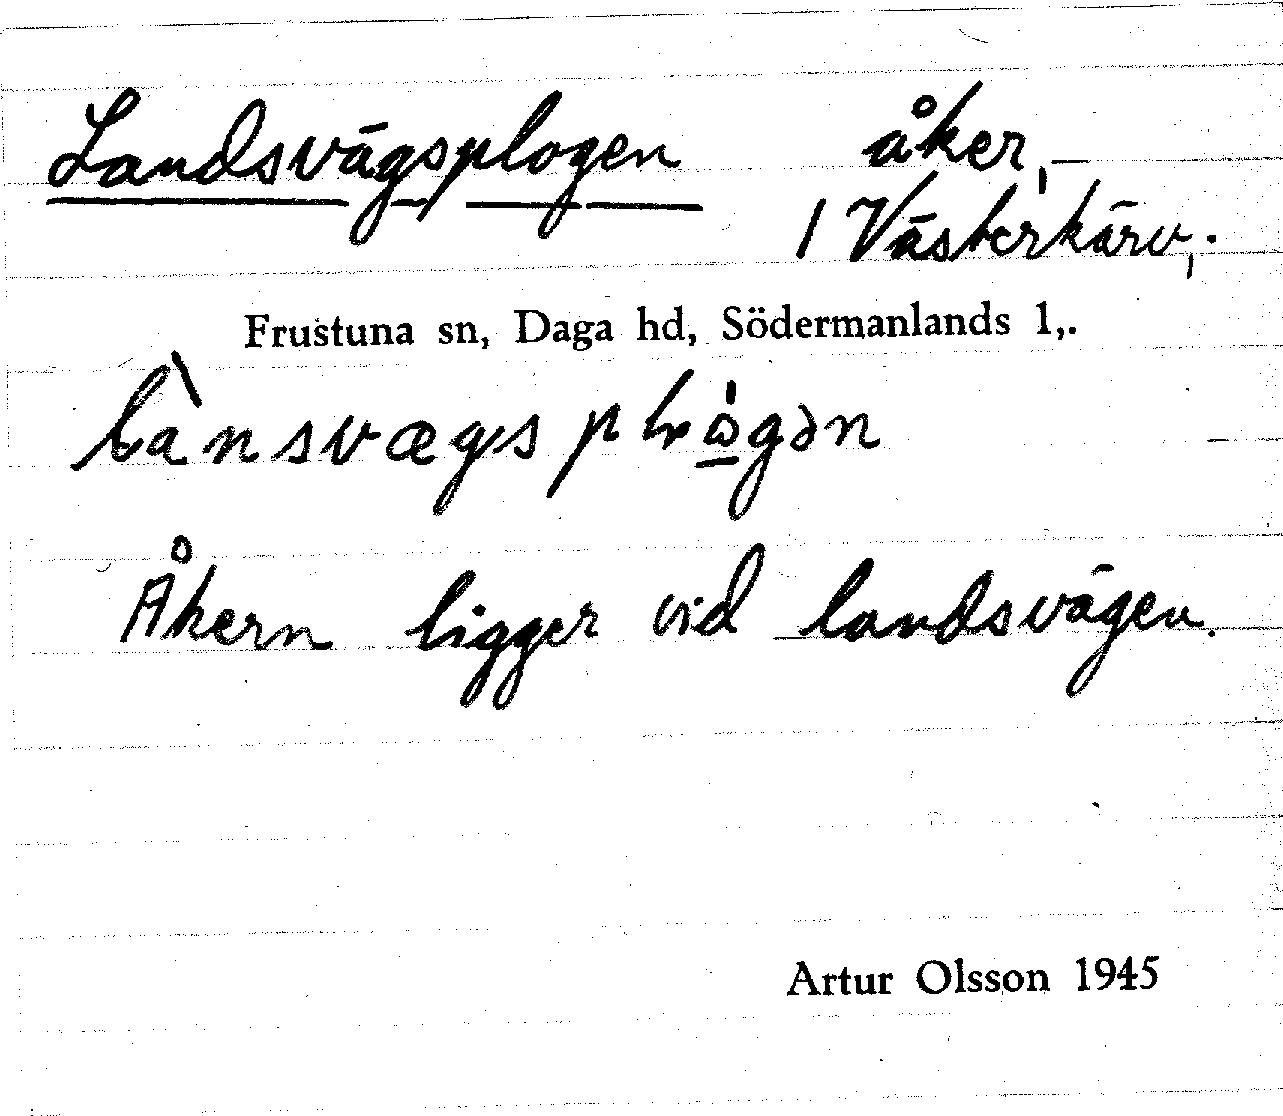 Landsvägsplogen åker,
1 Västerkärv,.
Frustuna sn, Daga hd, Södermanlands l,.
lànsvægsplω̲gən
Åkern ligger vid landsvägen.
Artur Olsson 1945